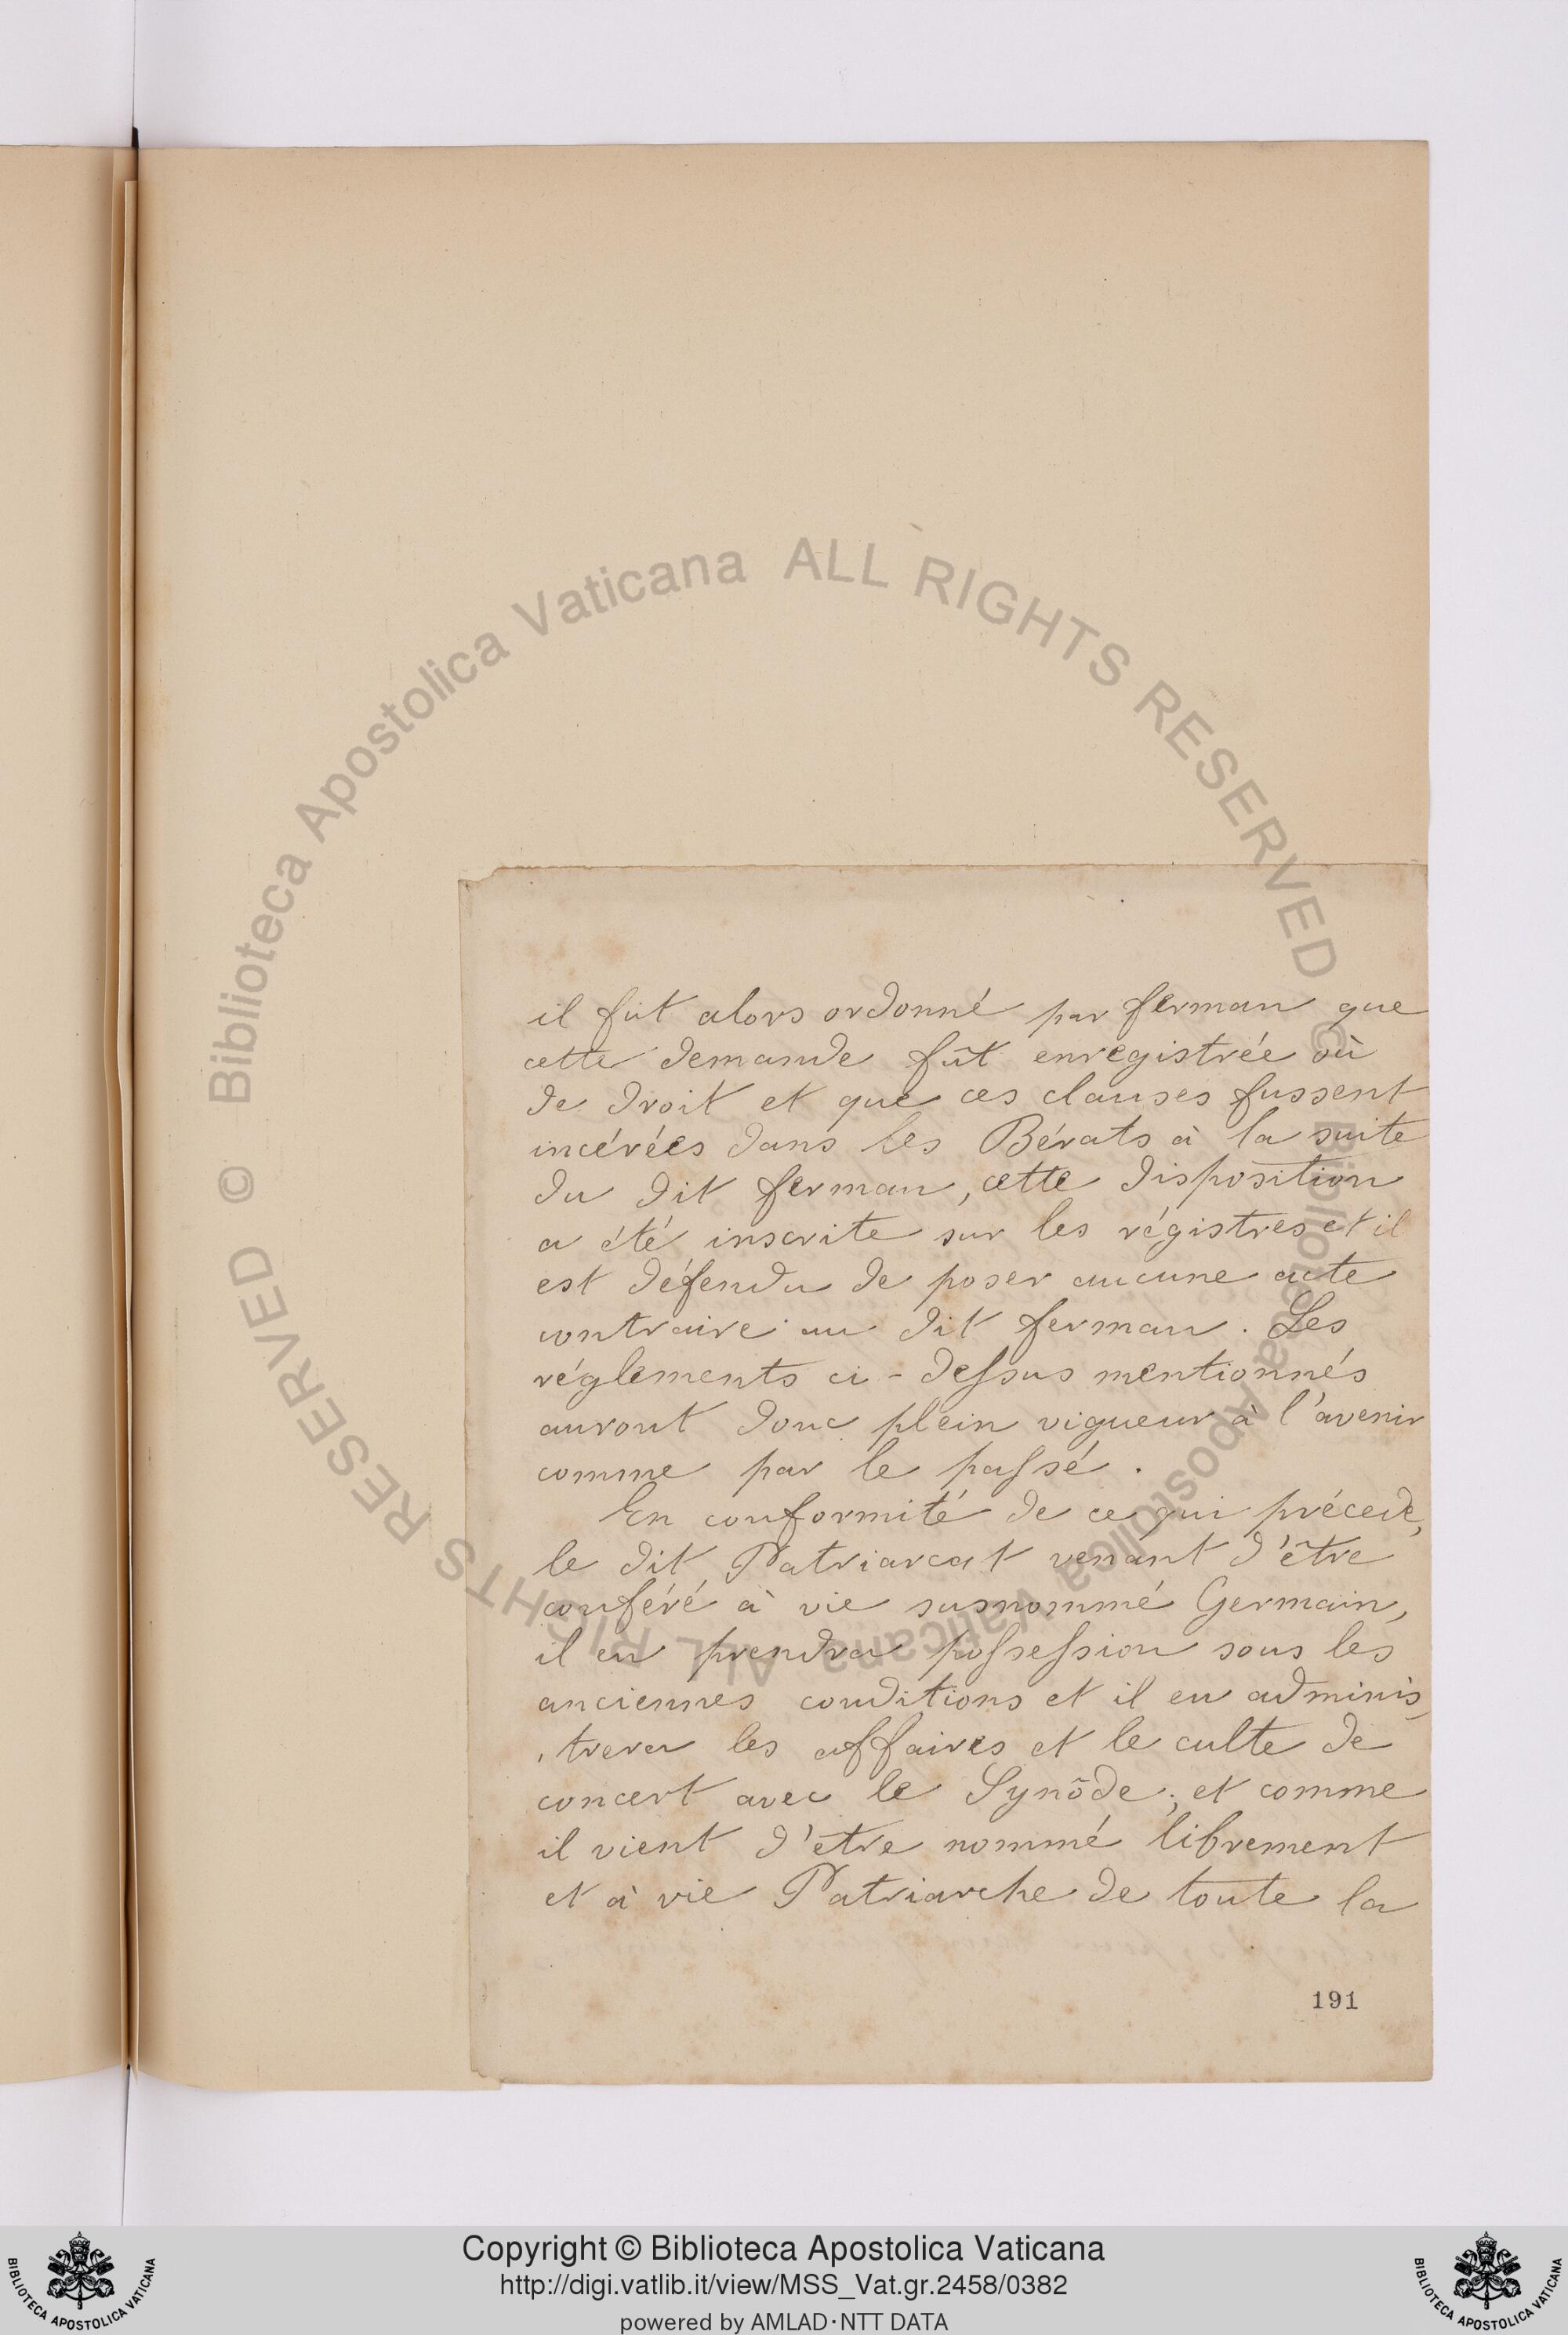 il fût alors ordonné par ferman que
cette demande fût enregistrée où
de droit et que ces clauses fussent
incérées dans les Bérats à la suite
du dit ferman, cette disposition
a été inscrite sur les régistres et il
est défendu de poser aucune acte
contraire au dit ferman. Les
réglements ci-dessus mentionnés
auront donc plein vigueur à l'avenir
comme par le passé.
En conformité de ce qui précede,
le dit Patriarcat venant d'être
conféré à vie susnommé Germain,
il en prendra possession sous les
anciennes conditions et il en adminis,
,trera les affaires et le culte de
concert avec le Synôde; et comme
il vient d'etre nommé librement
et à vie Patriarche de toute la
191
© Biblioteca Apostolica Vaticana ALL RIGHTS RESERVED
© Biblioteca Apostolica Vaticana ALL RIGHTS RESERVED
Copyright © Biblioteca Apostolica Vaticana
http://digi.vatlib.it/view/MSS_Vat.gr.2458/0382
powered by AMLAD·NTT DATA
BIBLIOTECA APOSTOLICA VATICANA
BIBLIOTECA APOSTOLICA VATICANA